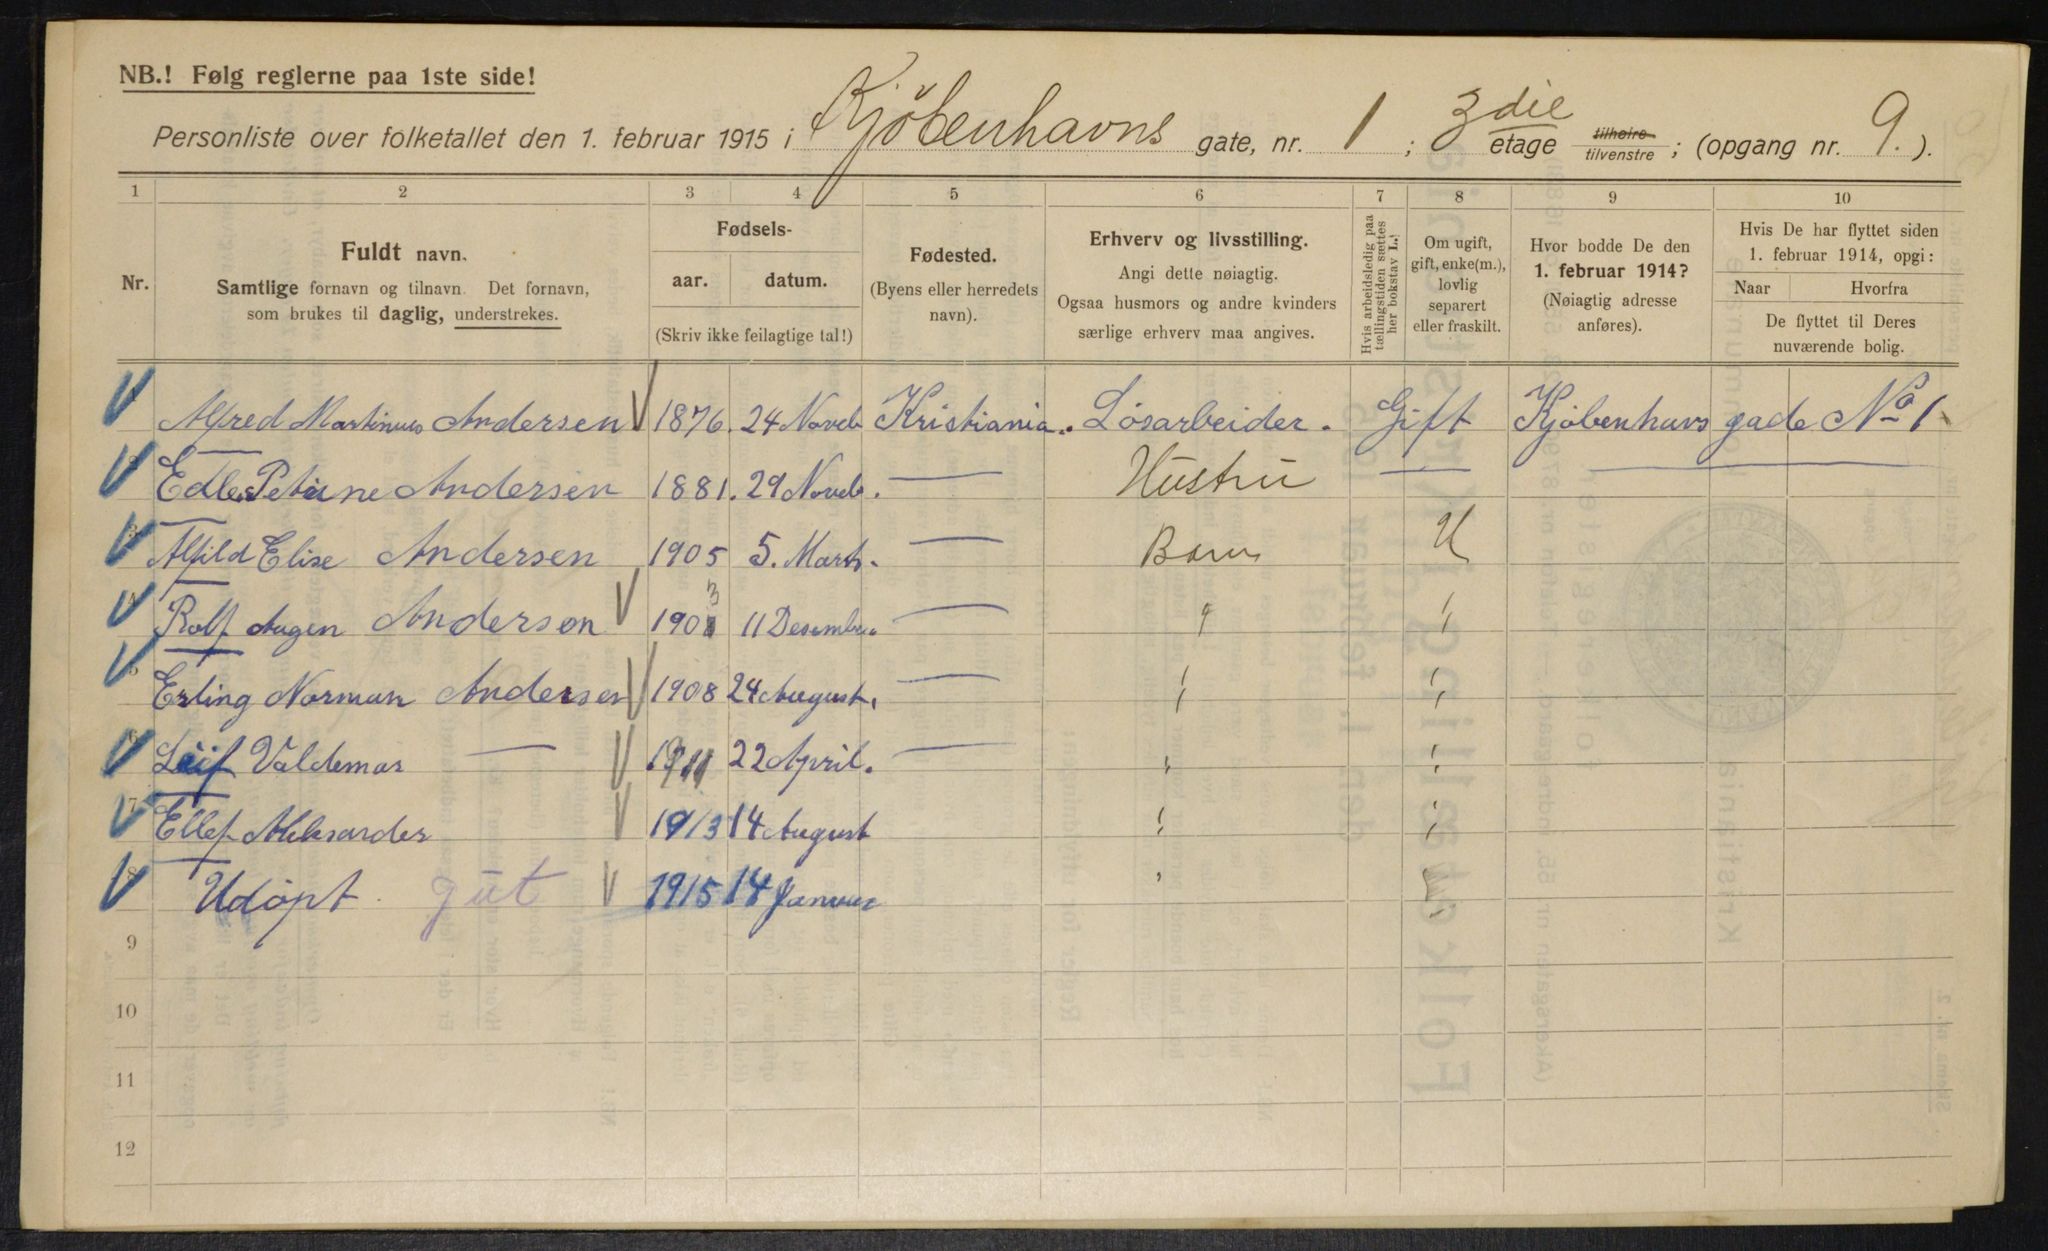 NB.! Følg reglerne paa 1ste side!
Personliste over folketallet den 1. februar 1915 i Kjöbenhavns gate, nr. 1 ; 3die etage tilhøire tilvenstre ; (opgang nr. 9. ).
1 2 3 4 5 6 7 8 9 10
Nr.
Fuldt navn.
Samtlige fornavn og tilnavn. Det fornavn,
som brukes til daglig, understrekes.
Fødsels-
aar. datum.
(Skriv ikke feilagtige tal!)
Fødested.
(Byens eller herredets
navn).
Erhverv og livsstilling.
Angi dette nøiagtig.
Ogsaa husmors og andre kvinders
særlige erhverv maa angives.
Hvis arbeidsledig paa
tællingstiden sættes
her bokstav L.
Om ugift,
gift, enke(m.),
lovlig
separert
eller fraskilt.
Hvor bodde De den
1. februar 1914?
(Nøiagtig adresse
anføres).
Hvis De har flyttet siden
1. februar 1914, opgi:
Naar Hvorfra
De flyttet til Deres
nuværende bolig.
Alfred Martinus Andersen 1876. 24 Noveb Kristiania. Løsarbeider. Gift Kjøbenhavs gade No 1
Petrine Andersen 1881. 29 Noveb. — Hustru — —
Alfild Elise Andersen 1905 5. Marts. — Barn U
4 Rolf Andersen 1903 11 Desember. — " "
5 Erling Norman Andersen 1908 24 August. — " "
6 Leif Valdemar — 1911 22 April. — " "
7 Ellef Aleksander 1913 14 August " "
8 Udøpt gut 1915 14 Januar "
9
10
11
12